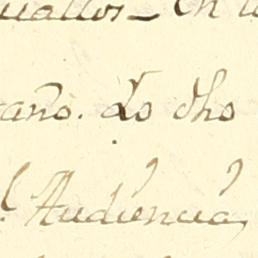 quattos_ En
año. Lo dho
l Audiencia